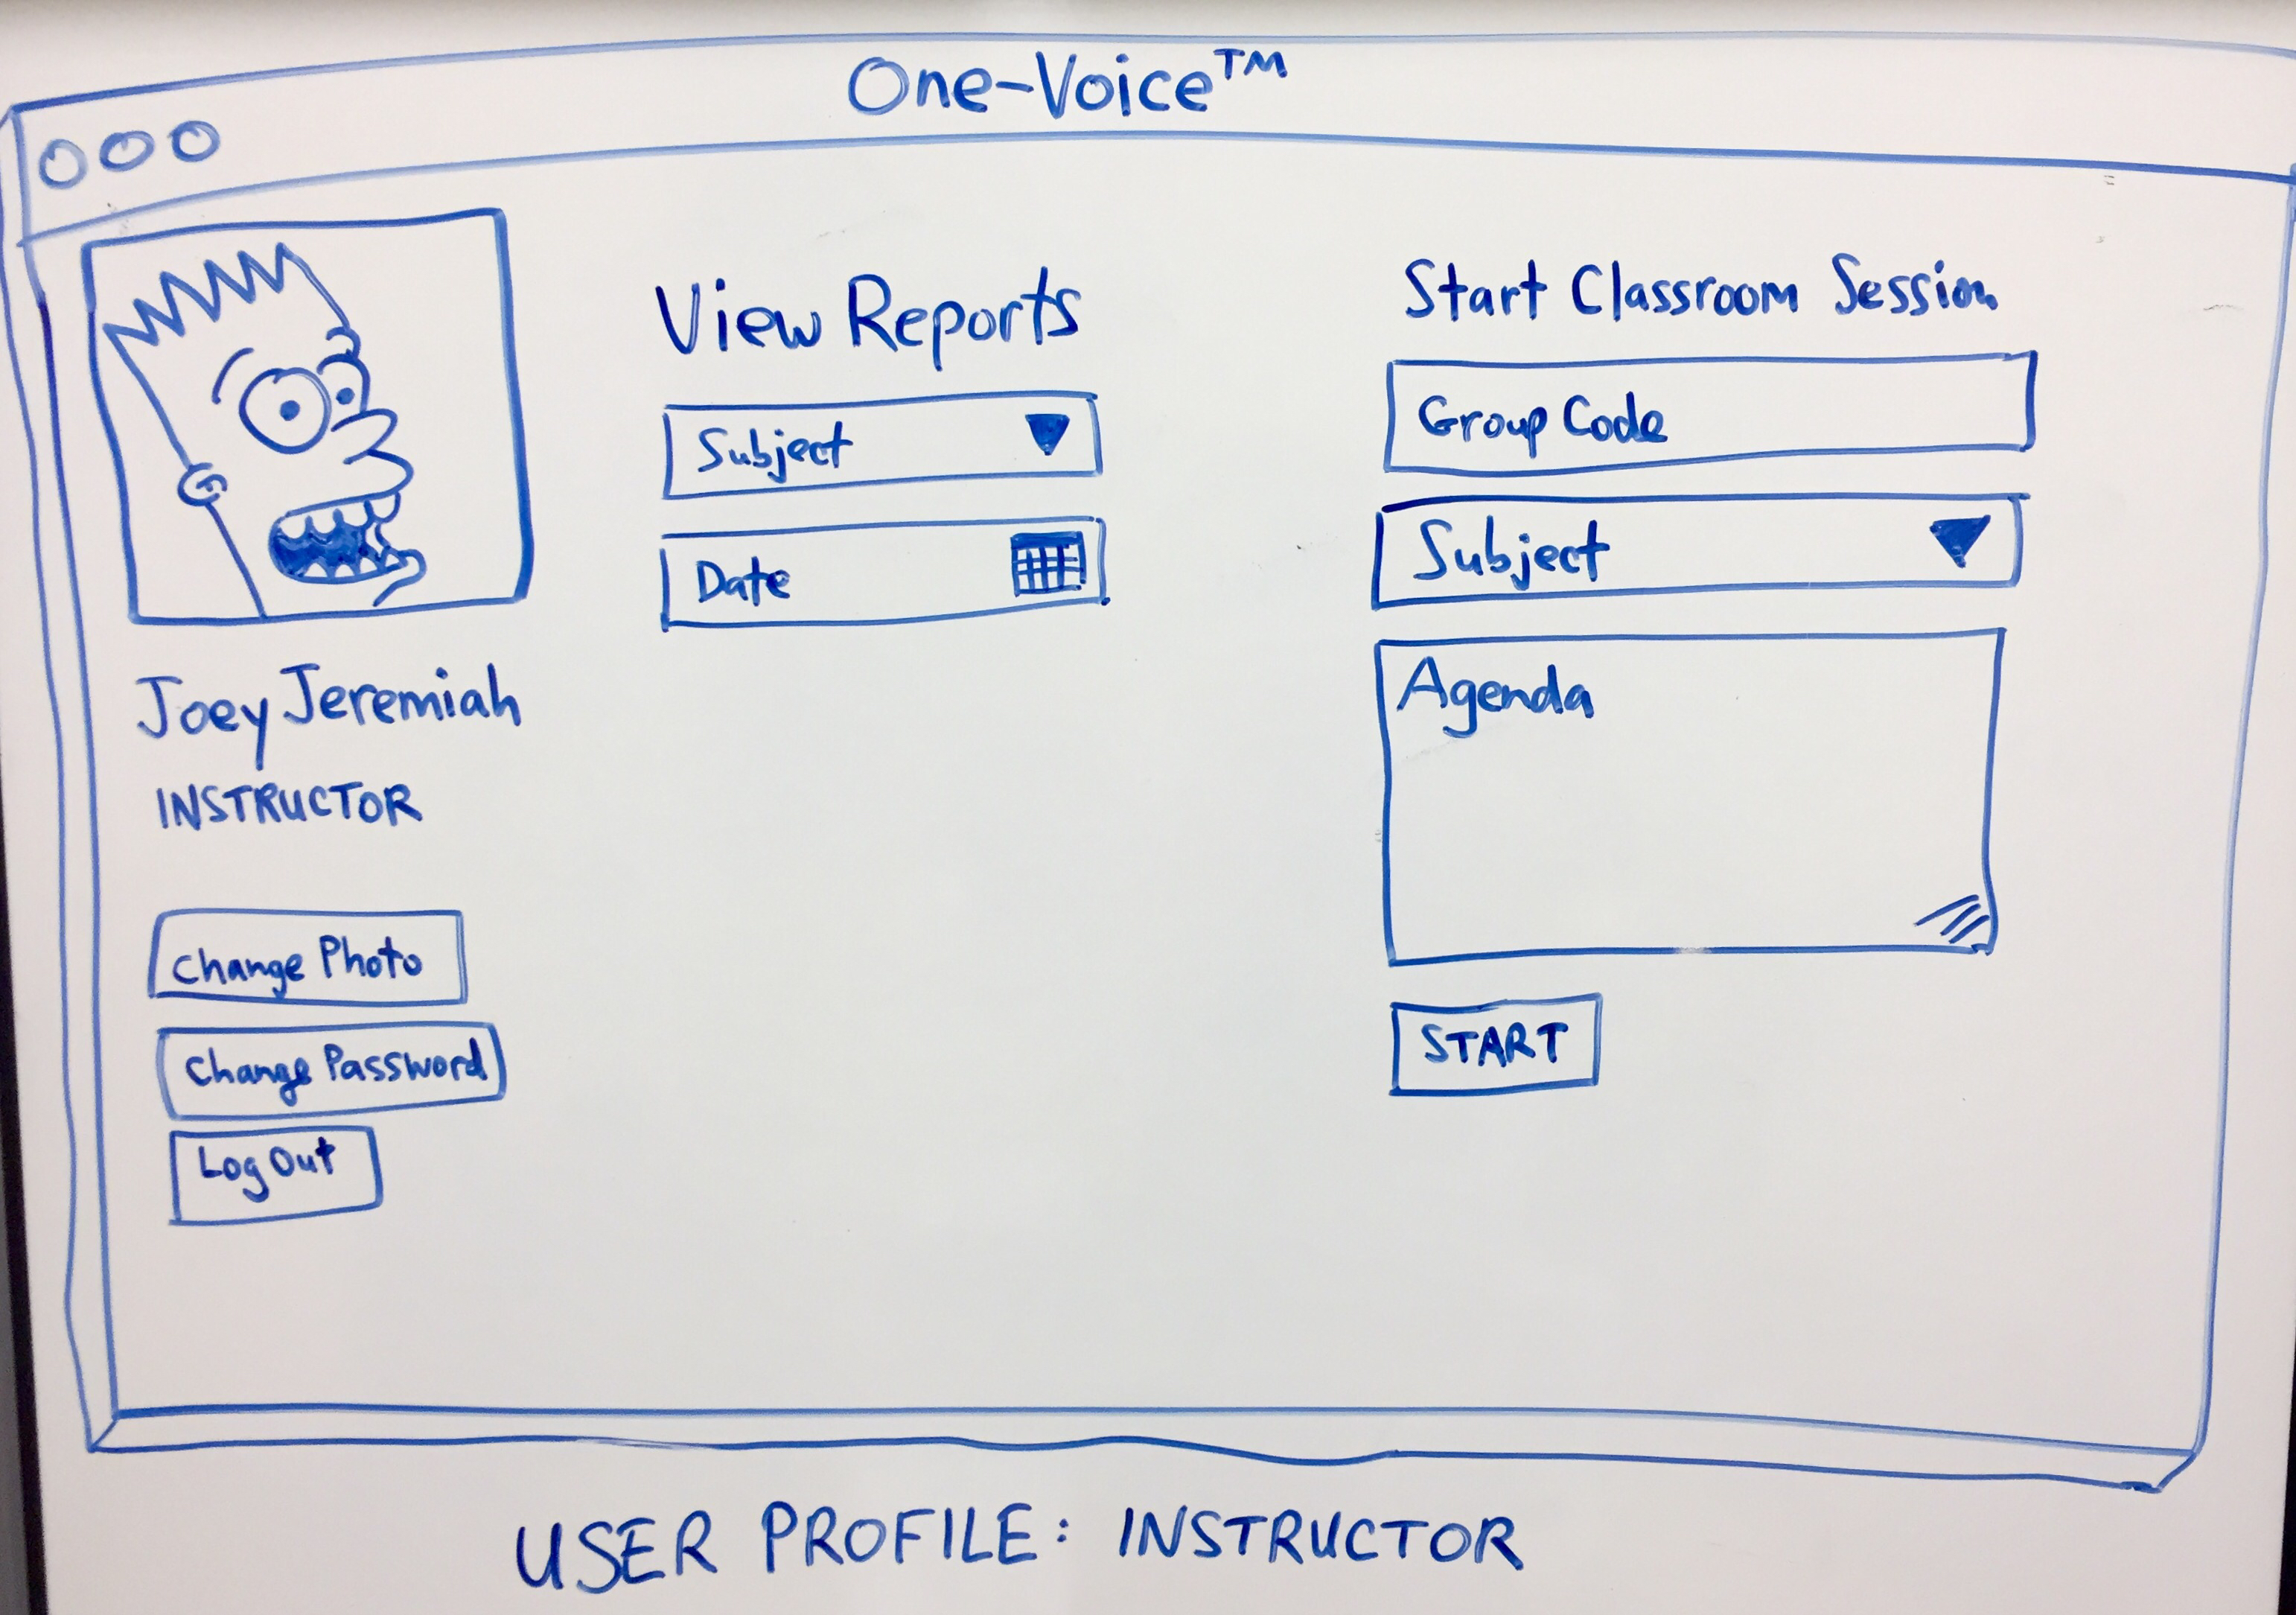 One-Voice™
Joey Jeremiah
INSTRUCTOR
Change Photo
Change Password
Log Out
View Reports
Subject
Date
Start Classroom Session
Group Code
Subject
Agenda
START
USER PROFILE: INSTRUCTOR